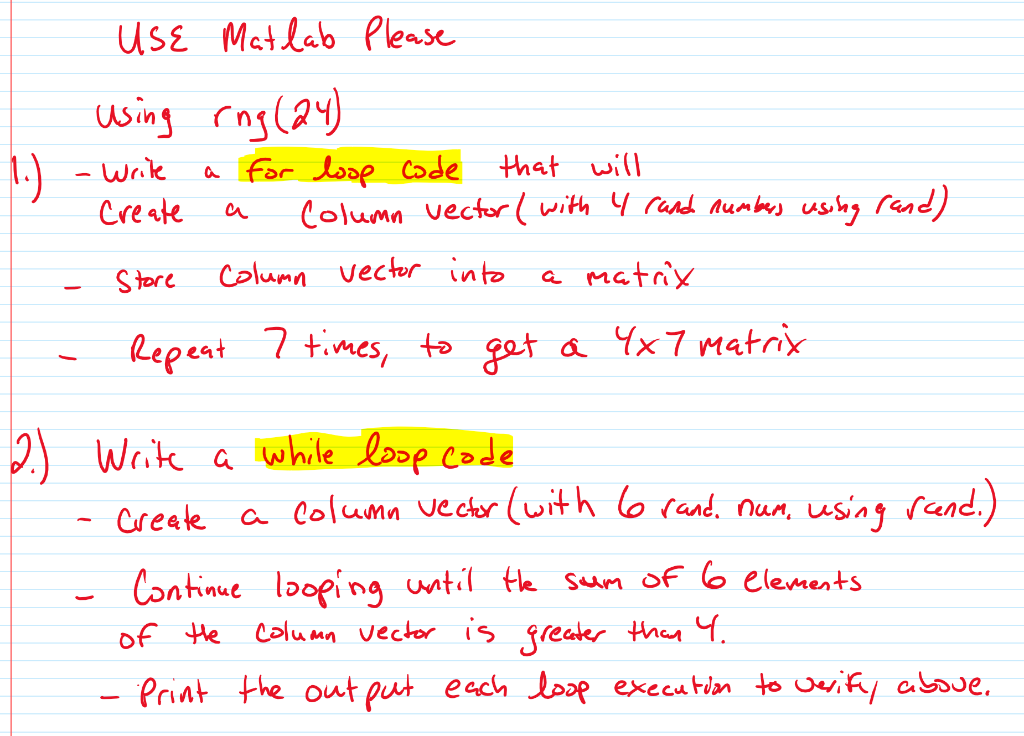 USE Matlab Please
Using rng(24)
1.) - Write a for loop code that will
Create a column vector (with 4 rand numbers using rand)
- Store column vector into a matrix
- Repeat 7 times, to get a 4x7 matrix
2.) Write a while loop code
- Create a column vector (with 6 rand. num. using rand.)
- Continue looping until the sum of 6 elements
of the column vector is greater than 4.
- Print the output each loop execution to verify above.